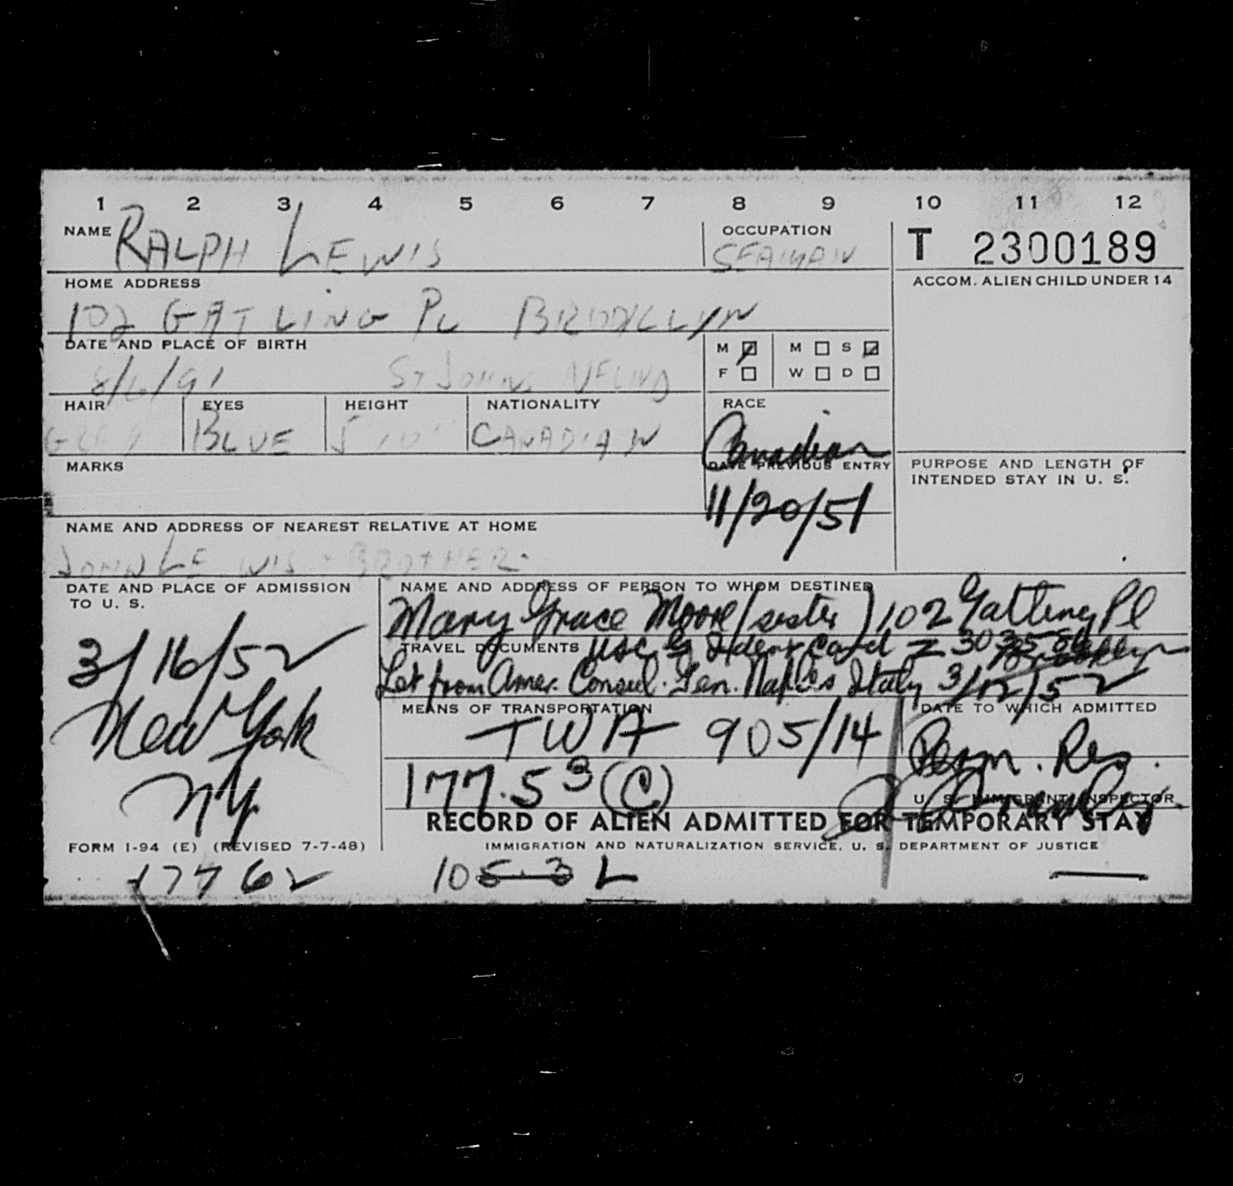 1 2 3 4 5 6 7 8 9 10 11 12
NAME RALPH LEWIS
OCCUPATION SEAMAN
T 2300189
HOME ADDRESS
102 GATLING PL BROOKLYN
ACCOM. ALIEN CHILD UNDER 14
DATE AND PLACE OF BIRTH
8/6/91 ST JOHNS NFLND
M F
M S
W D
HAIR EYES HEIGHT NATIONALITY RACE
BLUE CANADIAN Canadian
MARKS
DATE PREVIOUS ENTRY
11/20/51
PURPOSE AND LENGTH OF
INTENDED STAY IN U. S.
NAME AND ADDRESS OF NEAREST RELATIVE AT HOME
JOHN LEWIS - BROTHER -
DATE AND PLACE OF ADMISSION
TO U. S.
3/16/52
New York
NY
NAME AND ADDRESS OF PERSON TO WHOM DESTINED
Mary Grace Moore (sister) 102 Gatling Pl
Brooklyn
TRAVEL DOCUMENTS USCG Ident Card Z
Let from Amer. Consul. Gen. Naples Italy 3/12/52
MEANS OF TRANSPORTATION
TWA 905/14
DATE TO WHICH ADMITTED
Perm. Res.
177.53 (C)
U. S. IMMIGRANT INSPECTOR
RECORD OF ALIEN ADMITTED FOR TEMPORARY STAY
FORM I-94 (E) (REVISED 7-7-48)
IMMIGRATION AND NATURALIZATION SERVICE, U. S. DEPARTMENT OF JUSTICE
17762
105.3 L